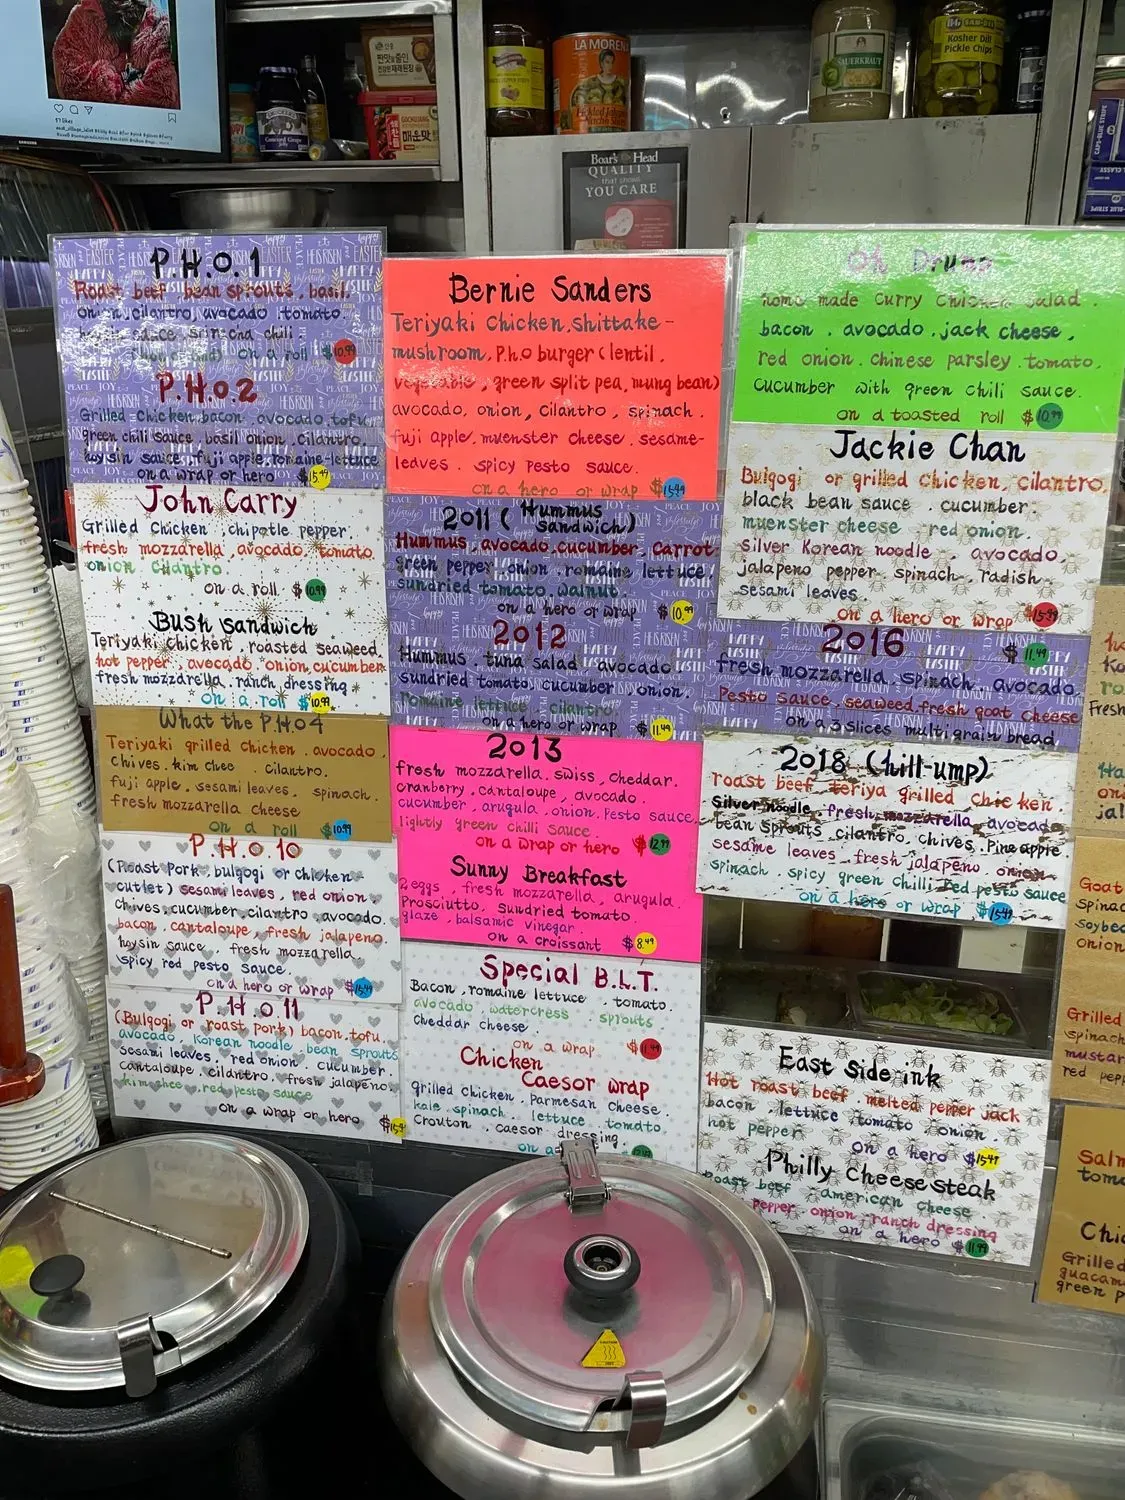 57 likes
SAMSUNG
CONCORD GRAPE
Jelly
LA MORENA
SAUERKRAUT
Kosher Dill
Pickle Chips
Boar's Head
QUALITY
that shows
YOU CARE
P.H.O.1
Roast beef bean sprouts, basil,
onion, cilantro, avocado tomato.
sriracha chili
on a roll $10.99
P.H.O.2
Grilled Chicken, bacon, avocado, tofu,
green chili sauce, basil onion, cilantro,
hoy sin sauce, fuji apple, romaine-lettuce
on a wrap or hero $15.49
John Carry
Grilled Chicken, chipotle pepper,
fresh mozzarella, avocado, tomato,
onion Cilantro
on a roll $10.99
Bush Sandwich
Teriyaki Chicken, roasted seaweed,
hot pepper, avocado, onion, cucumber
fresh mozzarella, ranch dressing
on a roll $10.99
What the P.H.O4
Teriyaki grilled chicken, avocado,
Chives, kim chee, cilantro,
fuji apple, sesami leaves, spinach,
fresh mozzarella cheese
on a roll $10.99
P.H.O.10
(Roast Pork, bulgogi or chicken
cutlet) sesami leaves, red onion,
chives, cucumber, cilantro, avocado,
bacon, cantaloupe, fresh jalapeno,
hoysin sauce, fresh mozzarella,
spicy red pesto sauce.
on a hero or wrap $15.49
P.H.O.11
(Bulgogi or roast pork) bacon, tofu,
avocado, Korean noodle, bean sprouts
sesami leaves, red onion, cucumber,
cantaloupe, cilantro, fresh jalapeno,
kimchee, red pesto sauce
on a wrap or hero $15.4
Bernie Sanders
Teriyaki Chicken, shittake-
mushroom, P.h.o burger (lentil,
vegetable, green split pea, mung bean)
avocado, onion, cilantro, spinach,
fuji apple, muenster cheese, sesame-
leaves, spicy pesto sauce.
on a hero or wrap $15.49
2011 (Hummus
sandwich)
Hummus, avocado, cucumber, carrot
green pepper, onion, romaine lettuce
sundried tomato, walnut.
on a hero or wrap $10.99
2012
Hummus, tuna salad, avocado
sundried tomato, cucumber, onion,
romaine lettuce cilantro
on a hero or wrap $11.49
2013
fresh mozzarella, swiss, cheddar,
cranberry, cantaloupe, avocado,
cucumber, arugula, onion, Pesto sauce,
lightly green chili sauce.
on a wrap or hero $12.99
Sunny Breakfast
2 eggs, fresh mozzarella, arugula,
Prosciutto, sundried tomato,
glaze, balsamic vinegar.
on a croissant $8.49
Special B.L.T.
Bacon, romaine lettuce, tomato,
avocado watercress sprouts
cheddar cheese.
on a wrap $11.49
Chicken
Caesor wrap
grilled chicken, Parmesan cheese,
kale, spinach, lettuce, tomato,
Crouton, caesor dressing
on a
Oh Drums
home made Curry Chicken salad,
bacon, avocado, jack cheese,
red onion, chinese parsley, tomato,
cucumber with green chili sauce.
on a toasted roll $10.99
Jackie Chan
Bulgogi or grilled Chicken, cilantro,
black bean sauce, cucumber,
muenster cheese red onion,
silver Korean noodle, avocado,
jalapeno pepper, spinach, radish
sesami leaves
on a hero or wrap $15.99
2016 $11.49
fresh mozzarella, spinach, avocado,
Pesto sauce, seaweed, fresh goat cheese
on a 3 slices multi grain bread
2018 (hill-ump)
roast beef teriya grilled chicken,
Silver noodle, fresh mozzarella, avocado,
bean sprouts, cilantro, chives, Pineapple
sesame leaves, fresh jalapeno onion,
spinach, spicy green chilli red pesto sauce
on a hero or wrap $15.49
East Side ink
Hot roast beef, melted pepper jack
bacon, lettuce, tomato, onion,
hot pepper
on a hero $15.49
Philly Cheese steak
Roast beef american cheese
pepper onion ranch dressing
on a hero $11.99
Fresh
jal
Goat
Spinac
Soybea
onion
Grilled
spinach
mustar
red pepp
Salm
toma
Chi
Grilled
guacam
green p
CAUTION